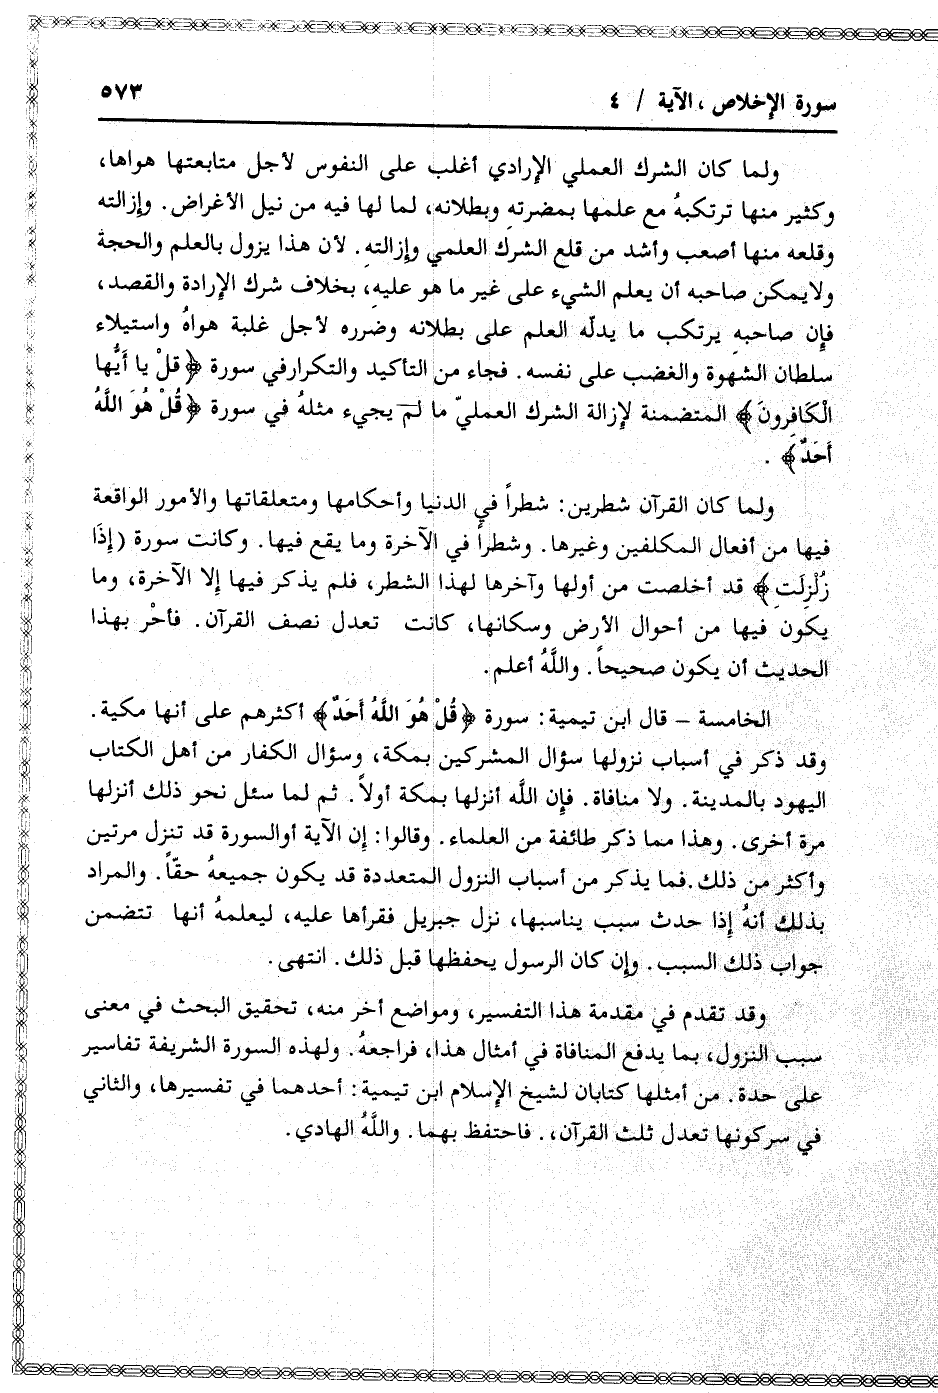 سورة الإخلاص ، الآية / ٤ ٥٧٣
ولما كان الشرك العملي الإرادي أغلب على النفوس لأجل متابعتها هواها،
وكثير منها ترتكبهُ مع علمها بمضرتهِ وبطلانه، لما لها فيه من نيل الأغراض. وإزالته
وقلعه منها أصعب وأشد من قلع الشرك العلمي وإزالتهِ. لأن هذا يزول بالعلم والحجة
ولايمكن صاحبه أن يعلم الشيء على غير ما هو عليهِ، بخلاف شرك الإرادة والقصد،
فإن صاحبهِ يرتكب ما يدلّه العلم على بطلانه وضرره لأجل غلبة هواهُ واستيلاء
سلطان الشهوة والغضب على نفسه. فجاء من التأكيد والتكرارفي سورة ﴿قلْ يا أَيُّها
الْكَافِرونَ﴾ المتضمنة لإزالة الشرك العمليّ ما لم يجيء مثلهُ في سورة ﴿قُلْ هُوَ اللَّهُ
أَحَدٌ﴾ .
ولما كان القرآن شطرين: شطراً في الدنيا وأحكامها ومتعلقاتها والأمور الواقعة
فيها من أفعال المكلفين وغيرها. وشطراً في الآخرة وما يقع فيها. وكانت سورة (إِذَا
زُلْزِلَتِ﴾ قد أخلصت من أولها وآخرها لهذا الشطر، فلم يذكر فيها إلا الآخرة، وما
يكون فيها من أحوال الأرض وسكانها، كانت تعدل نصف القرآن. فأحْر بهذا
الحديث أن يكون صحيحاً. واللَّهُ أعلم.
الخامسة – قال ابن تيمية: سورة ﴿قُلْ هُوَ اللَّهُ أَحَدٌ﴾ أكثرهم على أنها مكية.
وقد ذكر في أسباب نزولها سؤال المشركين بمكة، وسؤال الكفار من أهل الكتاب
اليهود بالمدينة. ولا منافاة. فإن الله أنزلها بمكة أولاً. ثم لما سئل نحو ذلك أنزلها
مرة أخرى. وهذا مما ذكر طائفة من العلماء. وقالوا: إن الآية أوالسورة قد تنزل مرتين
وأكثر من ذلك.فما يذكر من أسباب النزول المتعددة قد يكون جميعهُ حقّاً. والمراد
بذلك أنهُ إذا حدث سبب يناسبها، نزل جبريل فقرأها عليه، ليعلمهُ أنها تتضمن
جواب ذلك السبب. وإن كان الرسول يحفظها قبل ذلك. انتهى.
وقد تقدم في مقدمة هذا التفسير، ومواضع أخر منه، تحقيق البحث في معنى
سبب النزول، بما يدفع المنافاة في أمثال هذا، فراجعهُ. ولهذه السورة الشريفة تفاسير
على حدة. من أمثلها كتابان لشيخ الإسلام ابن تيمية: أحدهما في تفسيرها، والثاني
في سركونها تعدل ثلث القرآن،. فاحتفظ بهما. واللَّهُ الهادي.